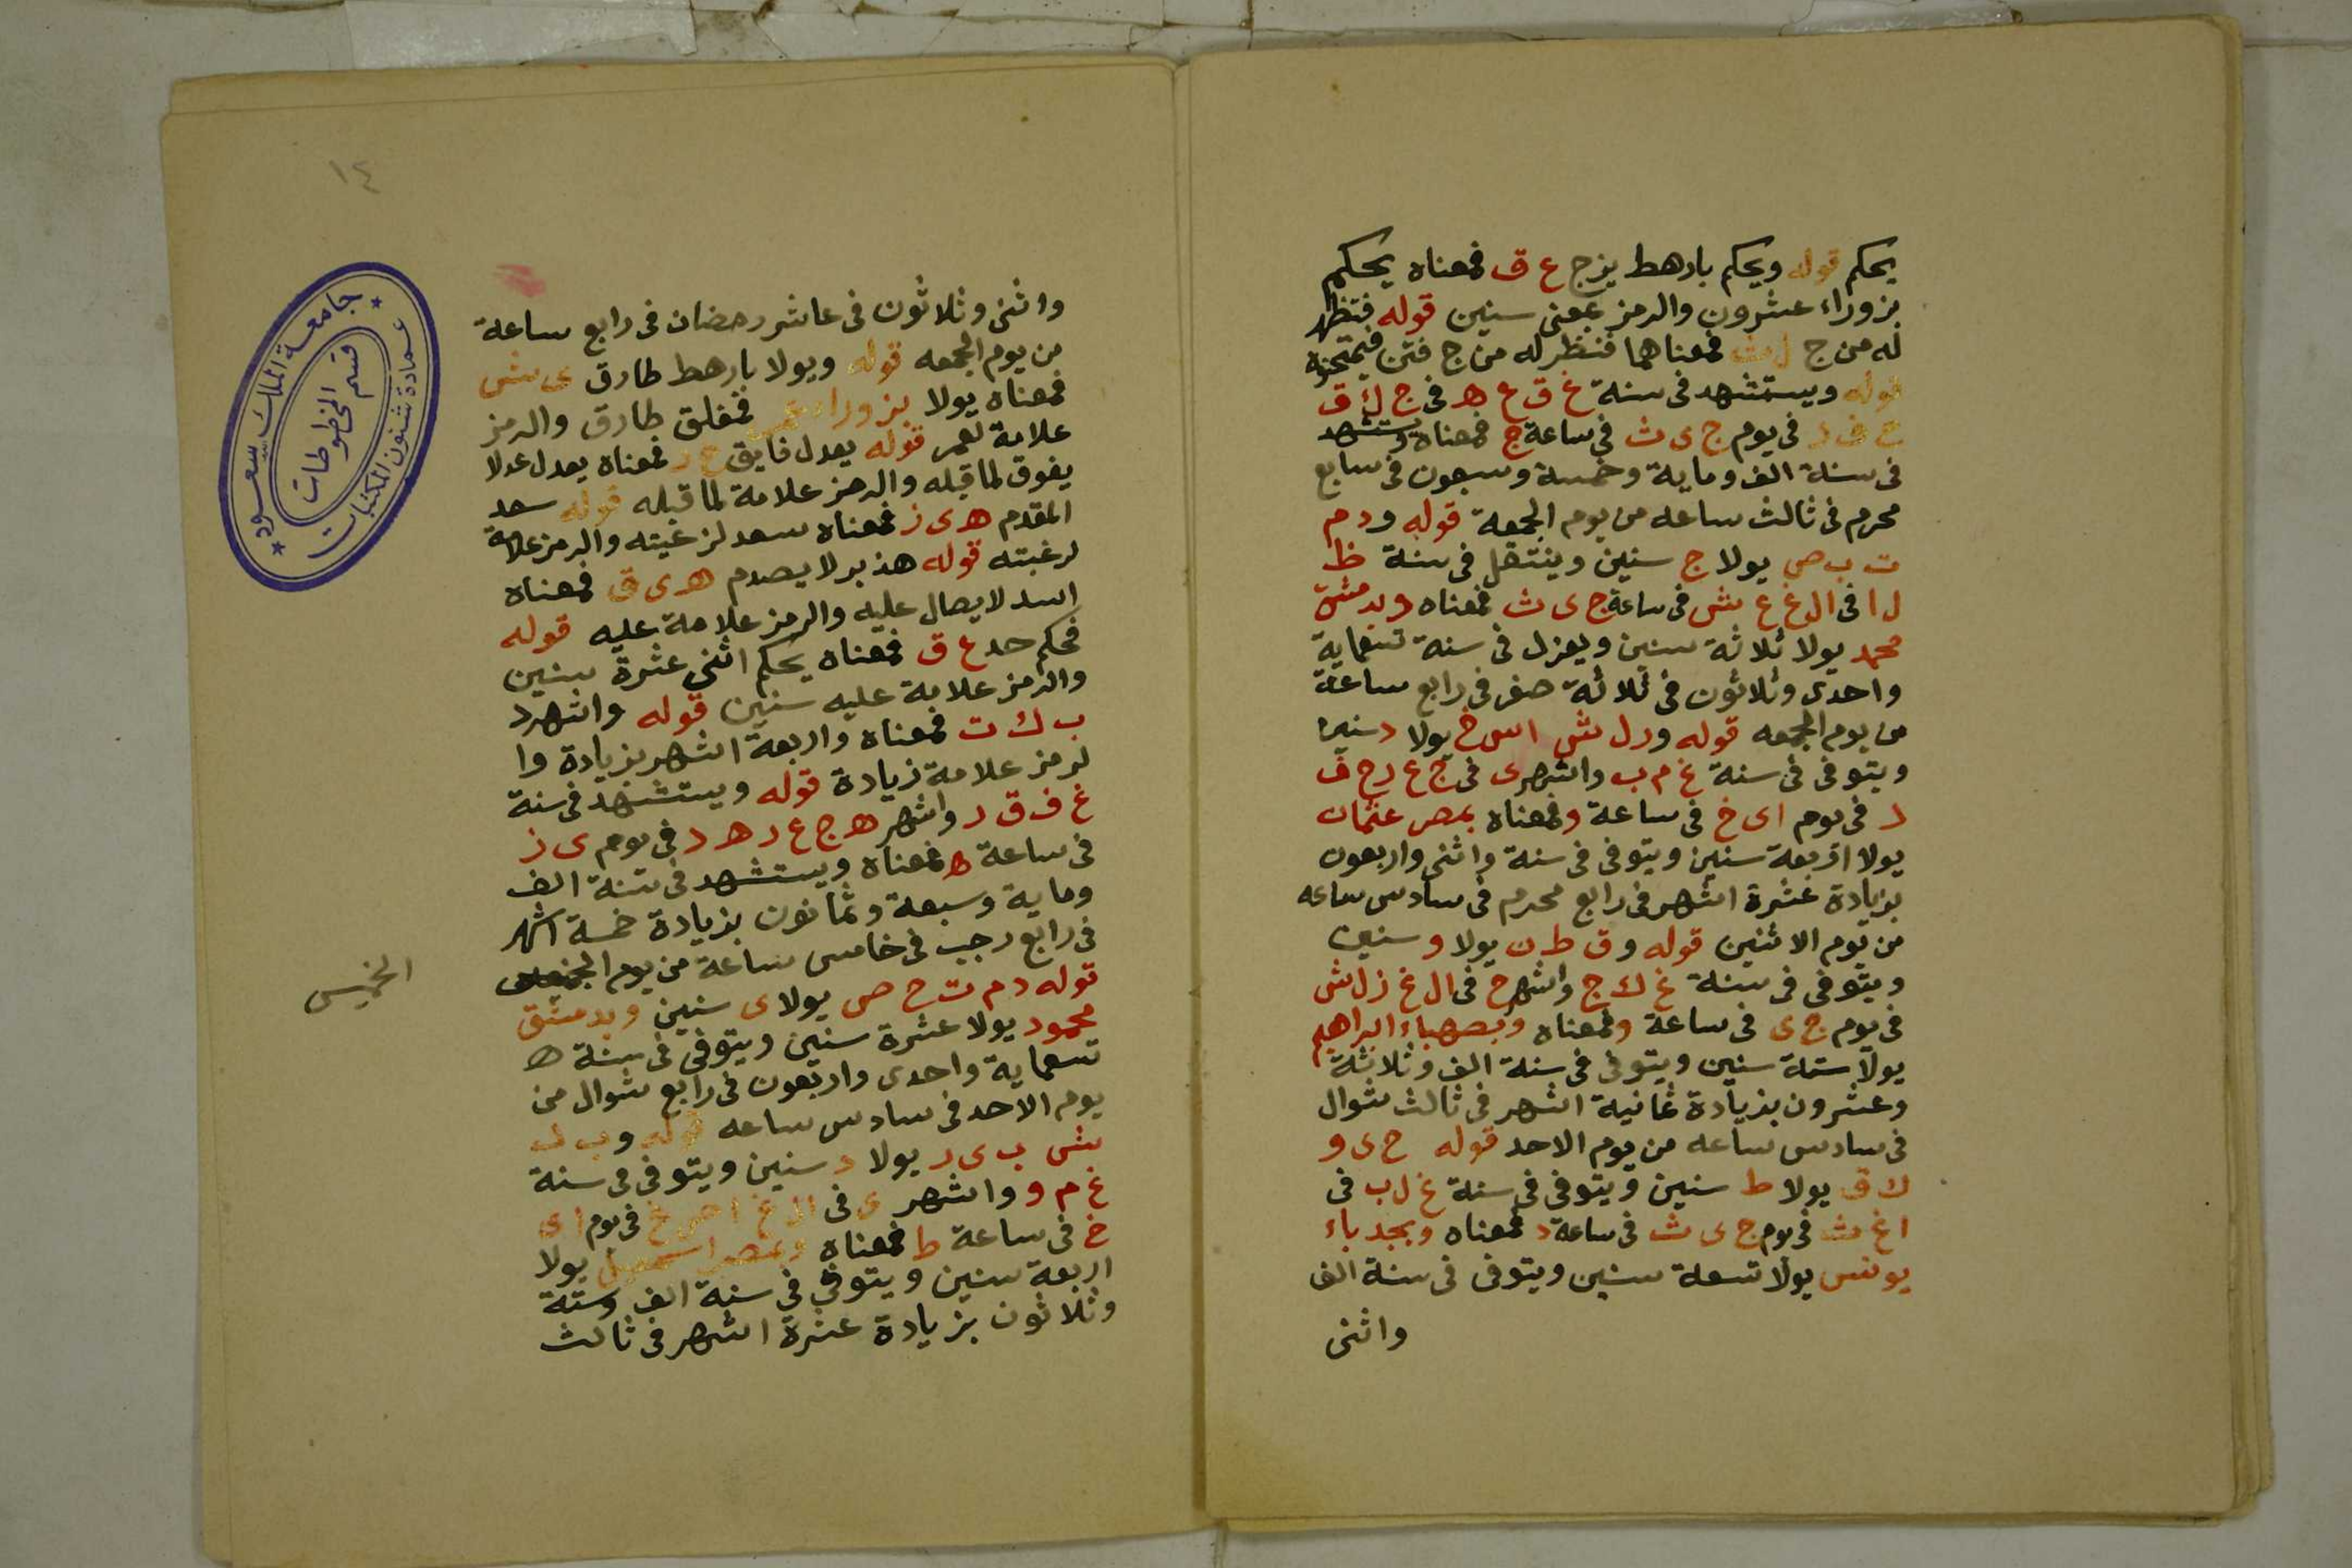 يحكم قوله ويحكم بارهط يزج ع ق فمعناه يحكم
بزوراء عشرون والرمز بمعنى سنين قوله فتظهر
له من ج ل ث فمعناهما فتظر له من ج فتن فيمتحنوه
قوله ويستشهد فى سنة غ ق ع ه فى ج ل ق
ح ف د فى يوم ج ى ث فى ساعة ج فمعناه ويستشهد
فى سنة الف وماية وخمسة وسبعون فى سابع
محرم فى ثالث ساعه من يوم الجمعة قوله ودم
ت ب ص يولا ج سنين وينتقل فى سنة ظ
ل ا فى ال غ ع ش فى ساعة ج ى ث فمعناه وبدمشق
محمد يولا ثلاثة سنين ويعزل فى سنة تسعماية
واحدى وثلاثون فى ثلاثة صفر فى رابع ساعة
من يوم الجمعه قوله ور ل ش اس خ يولا د سنين
ويتوفى فى سنة غ م ب واشهر ى فى ج ع ر ح ف
د فى يوم اى خ فى ساعة و فمعناه بمصر عثمان
يولا اربعة سنين ويتوفى فى سنة واثنى واربعون
بزيادة عشرة اشهر فى رابع محرم فى سادس ساعه
من يوم الاثنين قوله وق ط ن يولا و سنين
ويتوفى فى سنة غ ك ج واشهر ح فى ال غ ز ل ش
فى يوم ج ى فى ساعة و فمعناه وبصهباء ابراهيم
يولا ستة سنين ويتوفى فى سنة الف وثلاثة
وعشرون بزيادة ثمانية اشهر فى ثالث شوال
فى سادس ساعه من يوم الاحد قوله ح ى و
ك ق يولا ط سنين ويتوفى فى سنة غ ل ب فى
ا غ ث فى يوم ج ى ث فى ساعة د فمعناه وبجدباء
يونس يولا تسعة سنين ويتوفى فى سنة الف
واثنى
١٤
واثنى وثلاثون فى عاشر رمضان فى رابع ساعة
من يوم الجمعه قوله ويولا بارهط طارق ى ش
فمعناه يولا بزوراء فمغلق طارق والرمز
علامة لعمر قوله يعدل فايق ح د فمعناه يعدل عدلا
يفوق لما قبله والرمز علامة لما قبله قوله سعد
المقدم ه ى ز فمعناه سعد لرغبته والرمز علامة
لرغبته قوله هذبر لا يصدم ه ى ق فمعناه
اسد لا يصال عليه والرمز علامة عليه قوله
فحكم حد ع ق فمعناه يحكم اثنى عشرة سنين
والرمز علامة عليه سنين قوله واشهر د
ب ك ت فمعناه واربعة اشهر بزيادة وا
لرمز علامة زيادة قوله ويستشهد فى سنة
غ ف ق د واشهر ه ج ع ر ه د فى يوم ى ز
فى ساعة ه فمعناه ويستشهد فى سنة الف
وماية وسبعة وثمانون بزيادة خمسة اشهر
فى رابع رجب فى خامس ساعة من يوم
الخميس
قوله د م ت ح ص يولا ى سنين وبدمشق
محمود يولا عشرة سنين ويتوفى فى سنة ه
تسعماية واحدى واربعون فى رابع شوال من
يوم الاحد فى سادس ساعه قوله وب ل
ش ب ى ر يولا د سنين ويتوفى فى سنة
غ م و واشهر ى فى ال غ ا ص غ فى يوم اى
خ فى ساعة ط فمعناه وبمصر اسمعيل يولا
اربعة سنين ويتوفى فى سنة الف وستة
وثلاثون بزيادة عشرة اشهر فى ثالث
جامعة الملك سعود
عمادة شئون المكتبات
قسم المخطوطات